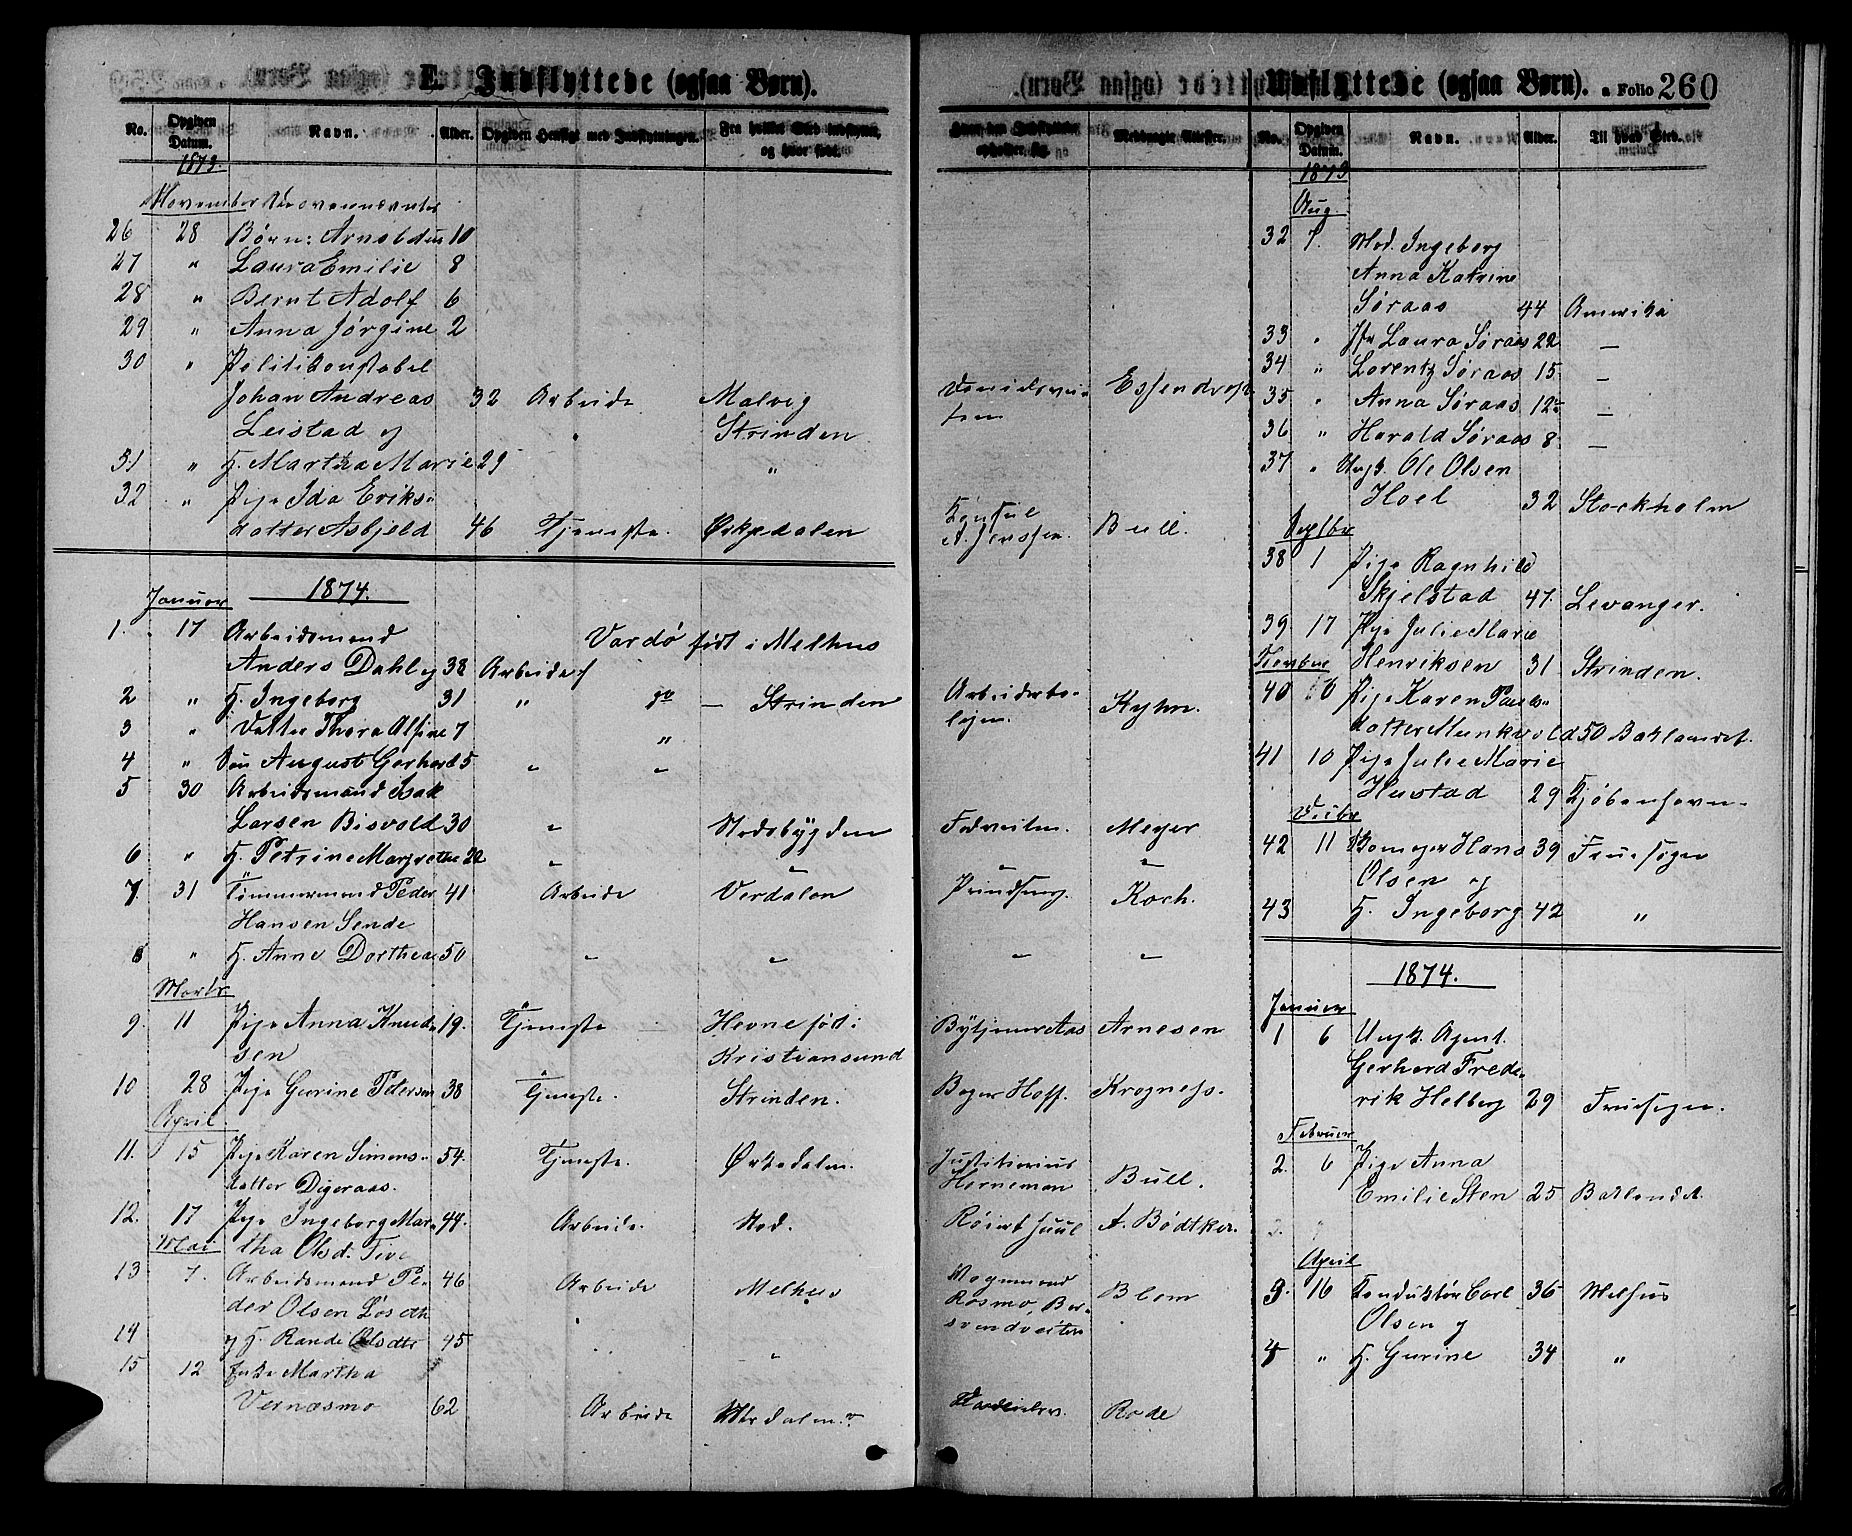 E. Indflyttede (ogsaa Børn).
No. Opgiven Datum. Navn. Alder. Opgiven Hensigt med Indflytningen. Fra hvilket Sted indflyttet, og hvor født.
1873.
November
26 28 Børn: Arnoldus 10
27 " Laura Emilie 8
28 " Bernt Adolf 6
29 " Anna Jørgine 2
30 " Politikonstabel
Johan Andreas 32 Arbeide Malvig
Leistad og " Strinden
31 " H. Martha Marie 29 "
32 " Pige Ida Eriks-
datter Asbjeld 46 Tjeneste. Ørkedalen
1874.
Januar
1. 17 Arbeidsmand Vardø født i Melhus
Anders Dahl og 38 Arbeide
2 " H. Ingeborg 31 " do — Strinden
3 " Datter Thora Alfine 7 "
4 " Søn August Gerhard 5 " "
5 30 Arbeidsmand Isak
Larsen Bisvold 30 " Stadsbygden
6 " H. Petrine Margrethe 22 " "
7. 31 Tømmermand Peder 41 Arbeide Verdalen
Hansen Sende
8 " H. Anne Dorthea 50 " "
Marts.
9. 11 Pige Anna Knud- 19. Tjeneste Hevne født i
sen Kristiansund
10 28 Pige Gurine Petersen 38 Tjeneste. Strinden.
April
11. 15 Pige Karen Simons- 54. Tjeneste. Ørkedalen.
datter Digeraas.
12. 17 Pige Ingeborg Mar- 44. Arbeide. Stod.
tha Olsd. Five
Mai
13 7. Arbeidsmand Pe- 46 Arbeide Melhus
der Olsen Løsdth
14 og H. Rande Olsdtr 45 "
15 12 Enke Martha
Vernæsmo 62 Arbeide Værdalen.
Hvor den Indflyttede opholder sig. Medbragte Attester.
Essendrop
Konsul
A. Jenssen. Bull.
Arbeiderbo-
ligen. Kyhn.
Meyer
"
Prindseng. Koch.
" "
Arnesen
Bager Hoff. Krogness.
Justitiarius
Horneman Bull.
Juul A. Bødtker.
Vognmand
Rosmo, Ber- Blom
svendveiten
Rode
Udflyttede (ogsaa Børn). a Folio 260
No. Opgiven Datum. Navn. Alder. Til hvad Sted.
1873
Aug.
32 7. Mad. Ingeborg
Anna Katrine
Søraas 44 Amerika
33 " Jfr Laura Søraas 22 —
34 " Lorentz Søraas 15 —
35 " Anna Søraas 12 —
36 " Harald Søraas 8 —
37 " Ungk. Ole Olsen
Hoel 32 Stockholm
Septbr
38 1 Pige Ragnhild
Skjelstad 47. Levanger.
39. 17 Pige Julie Marie
Henriksen 31 Strinden.
40 Pige Karen Pauls-
datter Munkvold 50 Baklandet.
41 10 Pige Julie Marie
Hustad 29 Kjøbenhavn
Decbr
42 11 Hans 39 Fruesogn
Olsen og
43 H. Ingeborg 42 "
1874.
Januar
1 6 Ungk. Agent.
Gerhard Frede-
rik Helberg 29 Fruesogn.
Februar
2. 6 Pige Anna
Emilie Sten 25 Baklandet.
April
3. 16 Konduktør Carl 36 Melhus
Olsen og
4 " H. Gurine 34 "